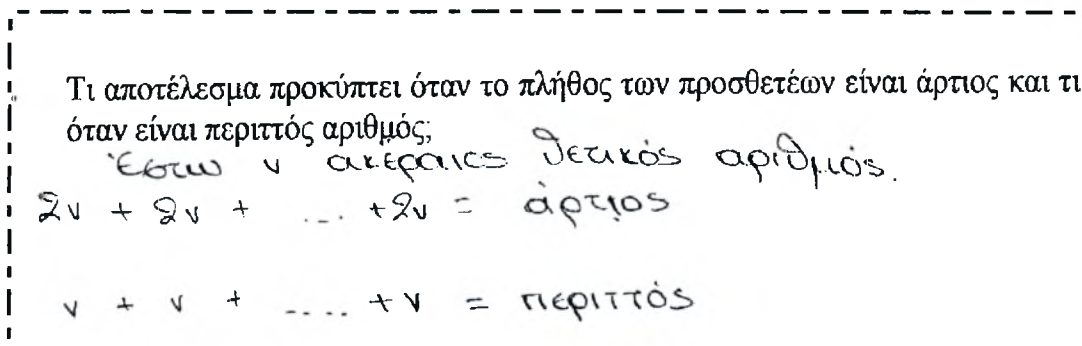 Τι αποτέλεσμα προκύπτει όταν το πλήθος των προσθετέων είναι άρτιος και τι
όταν είναι περιττός αριθμός;
Έστω ν ακέραιος θετικός αριθμός.
2ν + 2ν + .... +2ν = άρτιος
ν + ν + .... +ν = περιττός